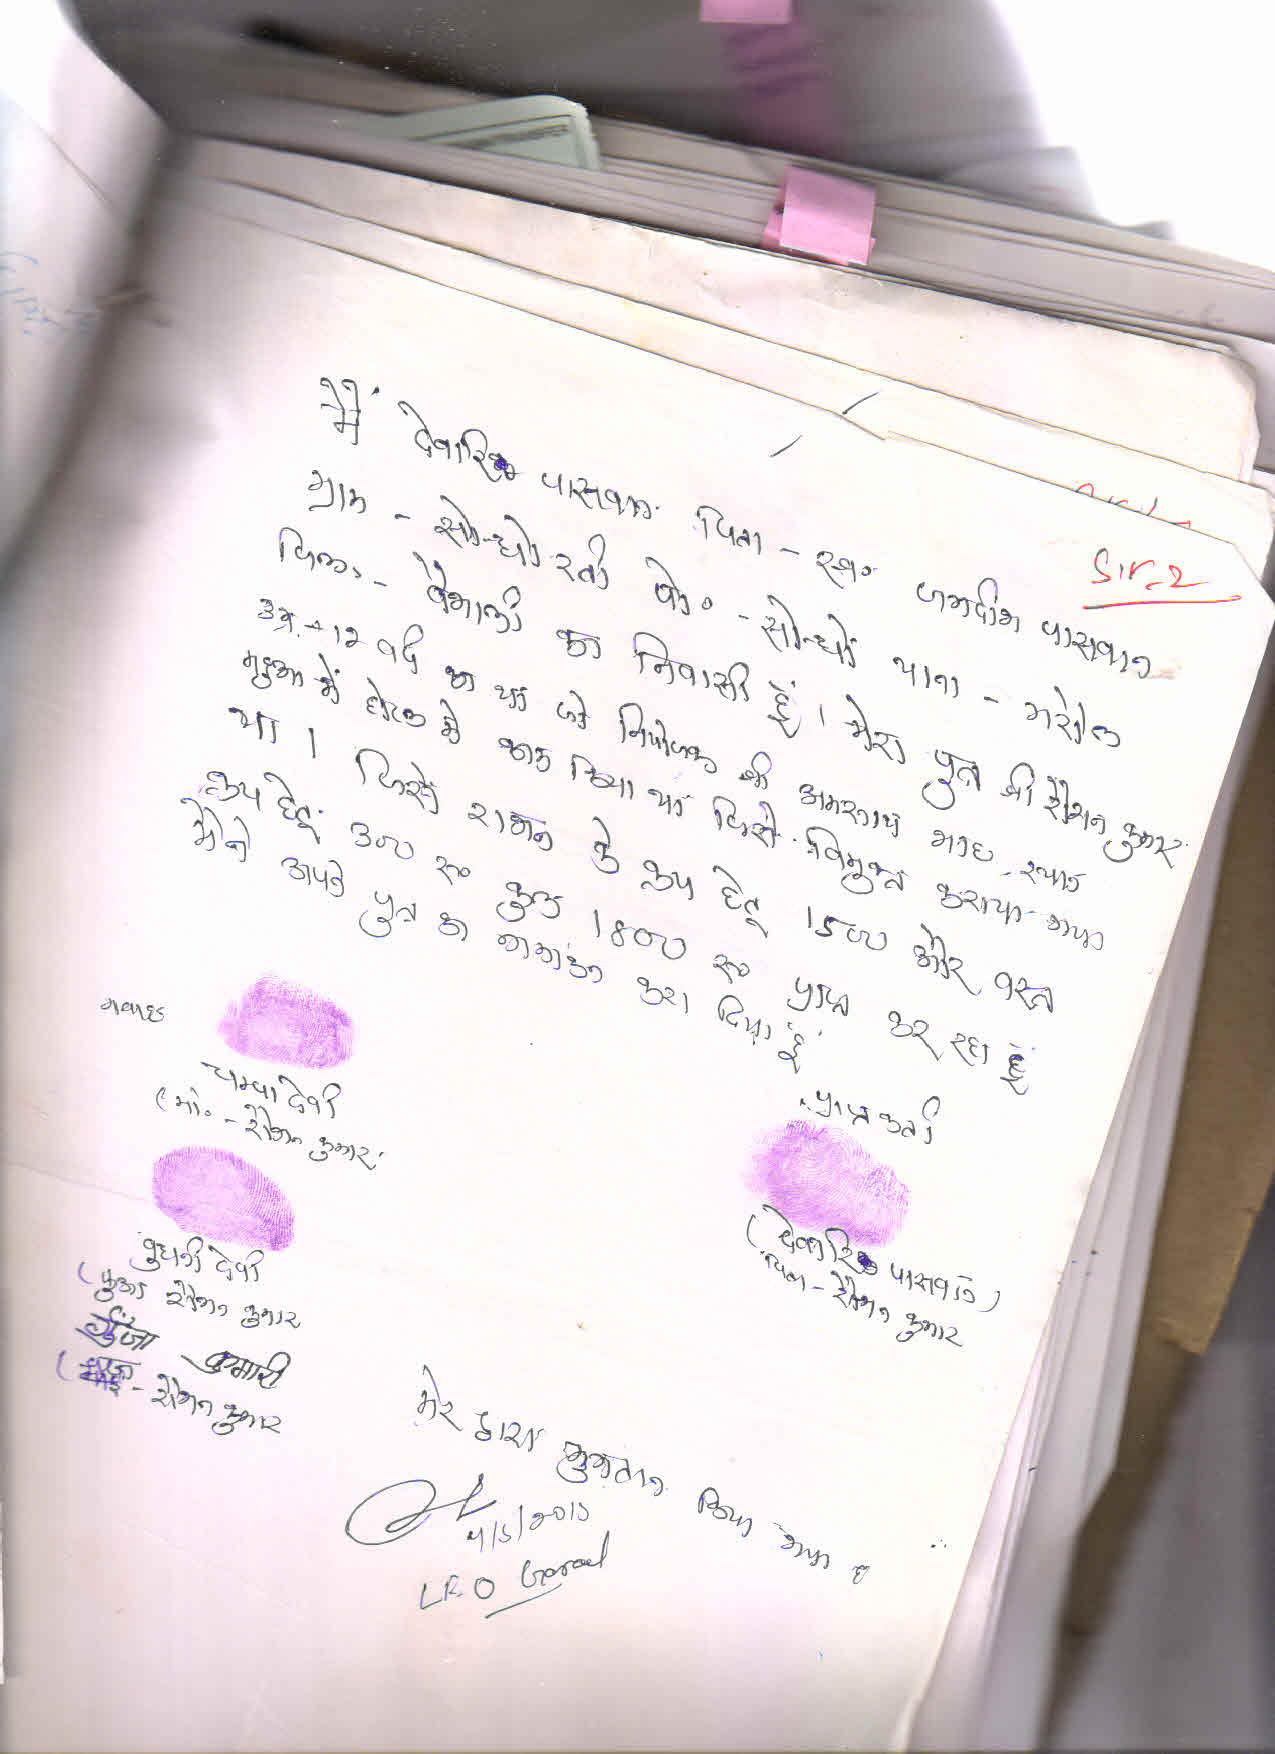 Sir-2
मैं देवारिक पासवान पिता - स्व० जगदीश पासवान
ग्राम - सोन्धो रती पो० - सोन्धो थाना - गरौल
जिला - वैशाली का निवासी हूँ। मेरा पुत्र श्री रौशन कुमार
उम्र - 12 वर्ष का था जो नियोजक श्री अमरनाथ साह स्थान
महुआ में होटल में काम किया था जिसे विमुक्त कराया गया
था। जिसे राशन के रूप हेतू 1500 और वस्त्र
रूप हेतू 300 रू० कुल 1800 रू० प्राप्त कर रहा हूँ
मैंने अपने पुत्र का नामांकन करा दिया हूँ
गवाह
चम्पा देवी
(माँ० - रौशन कुमार
प्राप्त कर्ता
(देवारिक पासवान)
पिता - रौशन कुमार
बुधनी देवी
(फुआ रौशन कुमार
गुंजा कुमारी
( - रौशन कुमार
मेरे द्वारा भुगतान किया गया है
4/5/2013
LEO Goraul